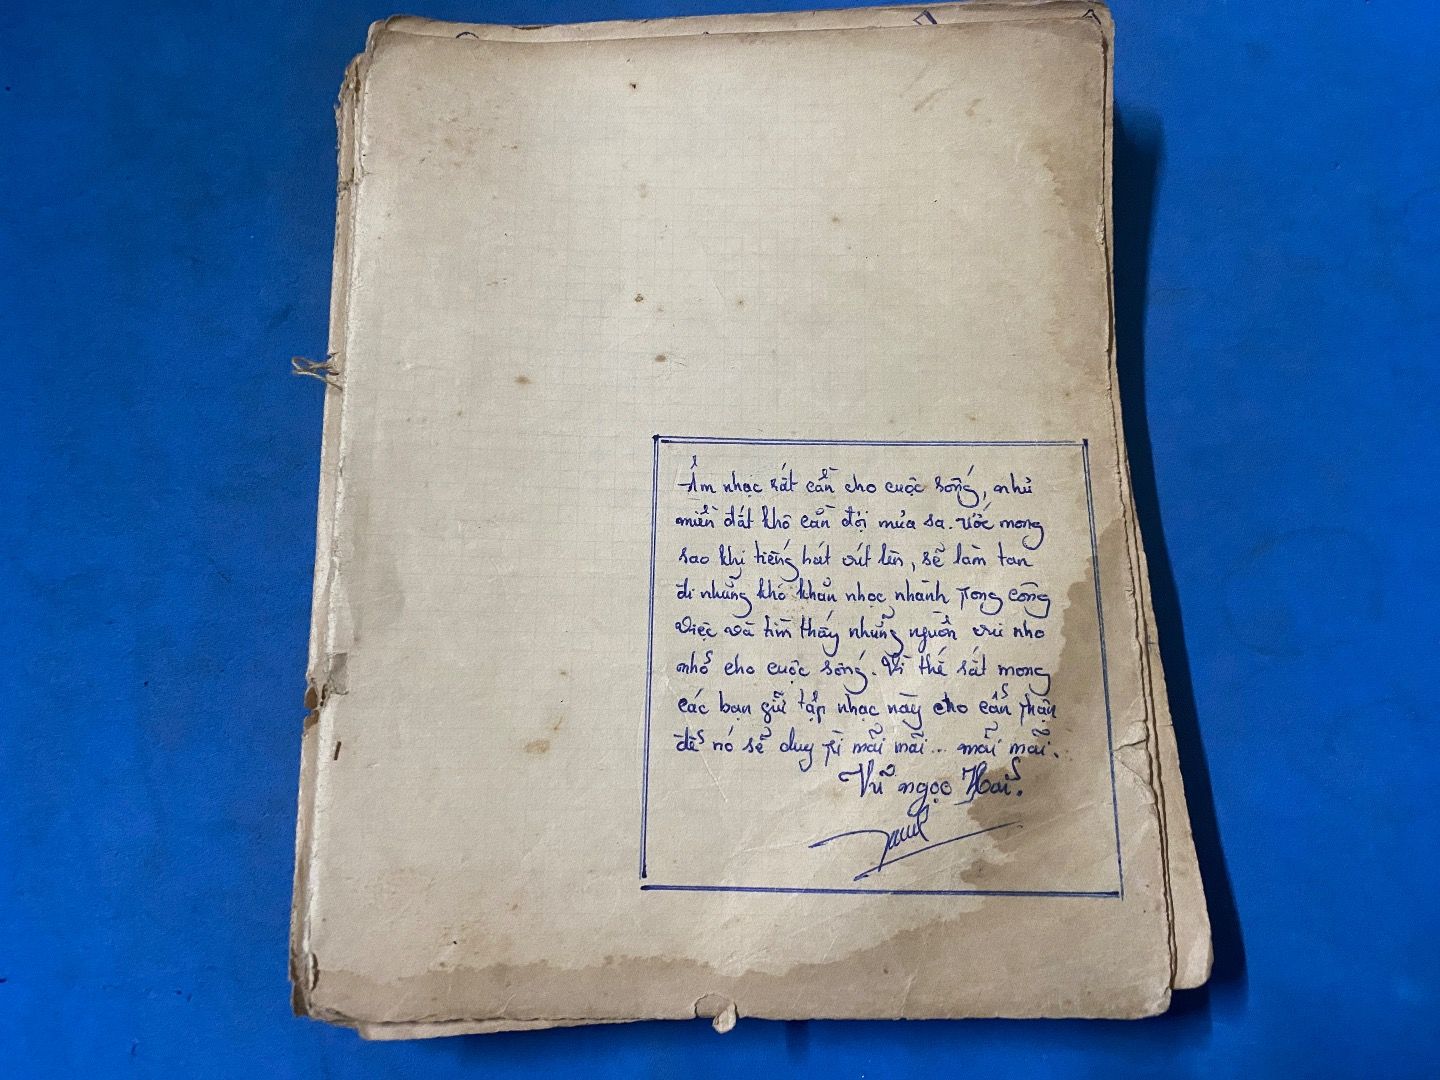 Âm nhạc rất cần cho cuộc sống, như
miền đất khô cần đợi mưa sa. Ước mong
sao khi tiếng hát vút lên, sẽ làm tan
đi những khó khăn nhọc nhành trong công
việc và tìm thấy những nguồn vui nho
nhỏ cho cuộc sống. Vì thế rất mong
các bạn giữ tập nhạc này cho cẩn thận
để nó sẽ duy trì mãi mãi... mãi mãi.
Vũ Ngọc Hải.